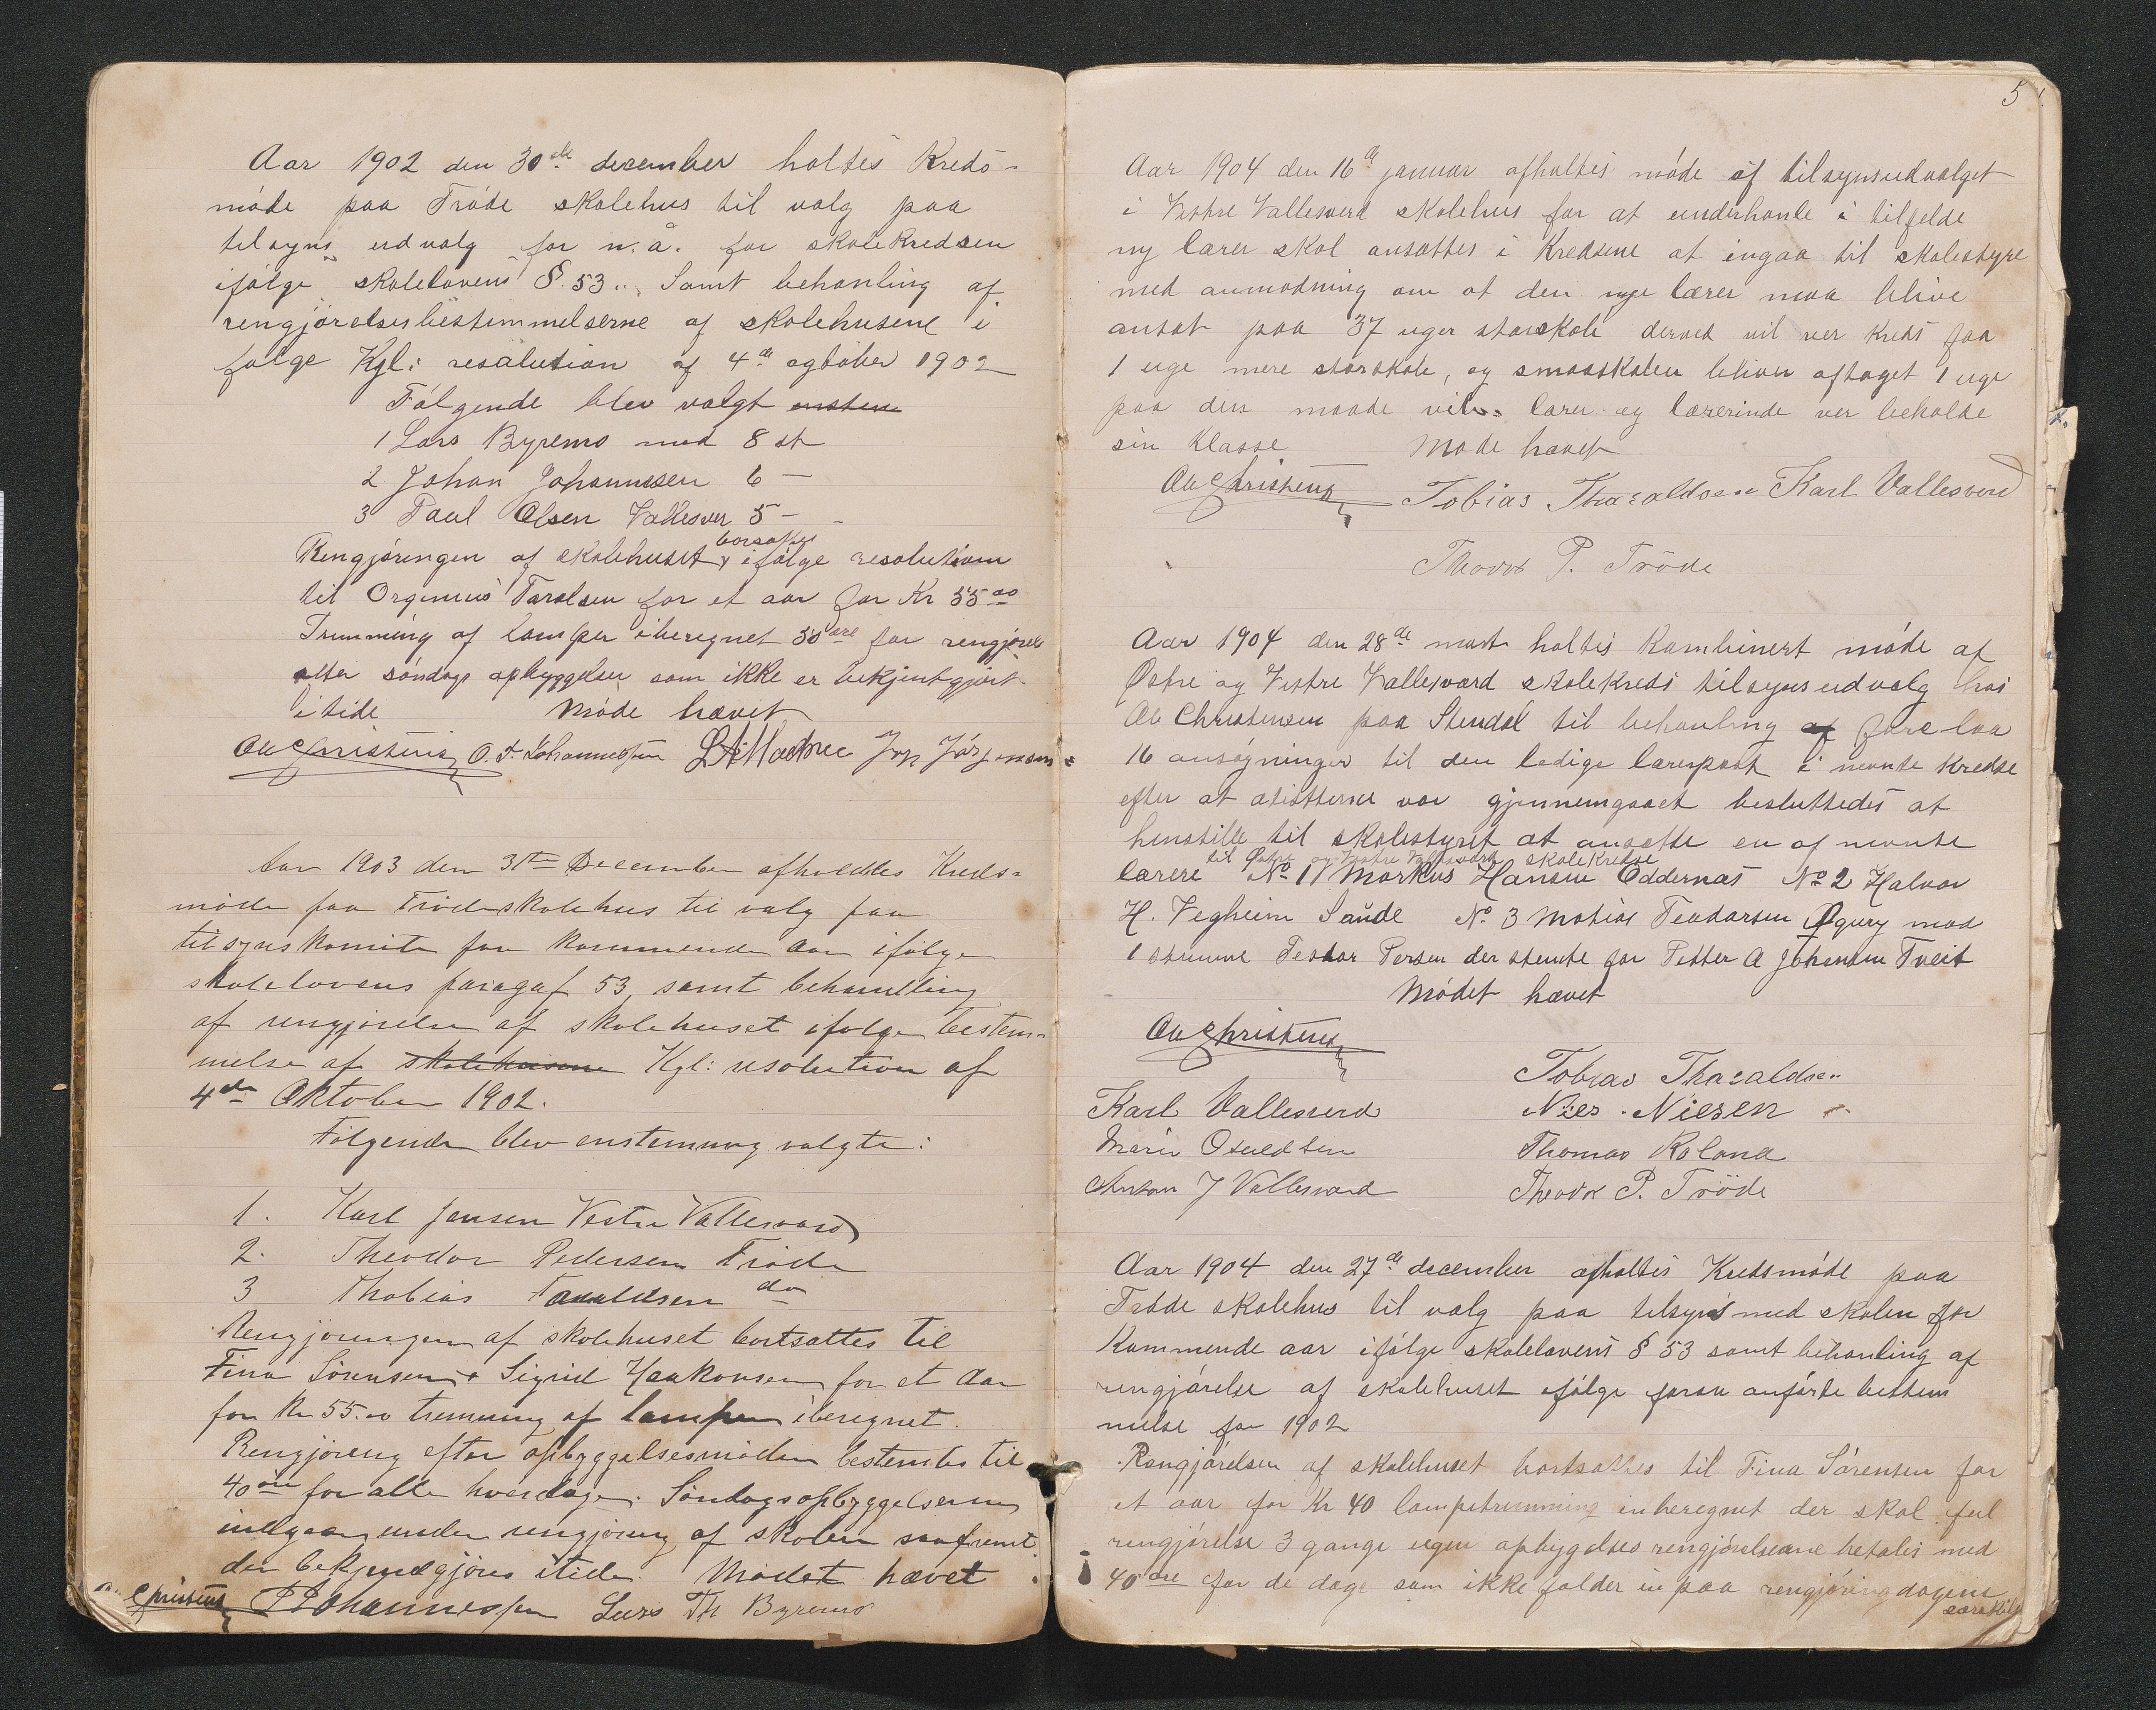 Aar 1902 den 30de december holtes Kreds-
møde paa Trøde skolehus til valg paa
tilsyns udvalg for n. å. for skolekredsen
ifølge skolelovens §. 53. Samt behanling af
rengjørelsesbestemmelserne af skolehusene i
følge Kgl: resolution af 4de ogtober 1902
Følgende blev valgt enstem
1 Lars Byremo med 8 st
2 Johan Johannesen 6 —
3 Paul Olsen Vallesver 5 —
Rengjøringen af skolehuset borsattes ifølge resolution
til Orgenius Tarelsen for et aar for Kr 55 00
Trimming af lamper iberegnet 50 øre for rengjørels
efter søndags opbyggelser som ikke er bekjentgjort
i tide Møde hævet
Ole Christens O. T. Johannessen Jørgensen
Aar 1903 den 31te December afholdtes Kreds-
møde paa Trøde skolehus til valg paa
tilsynskomite for kommende aar ifølge
skolelovens paragaf 53, samt behandling
af rengjørelse af skolehuset ifølge bestem-
melse af skolehusene Kgl: resolution af
4de Oktober 1902.
Følgende blev enstemmig valgte:
1. Karl Jensen Vestre Vallesværd
2. Theodor Pedersen Trøde
3 Thobias Taraldsen do
Rengjøringen af skolehuset bortsattes til
Fina Sørensen & Sigrid Haakonsen for et Aar
for Kr 55.00 tremning af lamper iberegnet.
Rengjøring efter opbyggelsesmøder bestemtes til
40 øre for alle hverdage. Søndagsopbyggelserne
indgaar under rengjøring af skolen saafremt
der bekjendtgjøres itide. Mødet hævet
Christens Johannessen Lars Th Byremo
5
Aar 1904 den 16de januar afholtes møde af tilsynsudvalget
i Vestre Vallesverd skolehus for at underhanle i tilfelde
ny lærer skal ansættes i Kredsene at ingaa til skolestyre
med anmodning om at den nye lærer maa blive
ansat paa 37 uger storskole derved vil ver kreds faa
1 uge mere storskole, og smaaskolen bliver aftaget 1 uge
paa den maade vil lærer og lærerinde ver beholde
sin Klasse Møde hævet
Ole Christens Tobias Tharaldsen Karl Vallesverd
Theodor P. Tröde
Aar 1904 den 28de mart holtes kombinert møde af
Østre og Vestre Vallesværd skolekreds tilsynsudvalg hos
Ole Christensen paa Stendal til behanling af forelaa
16 ansøgninger til den ledige lærerpost i nevnte kredse
efter at atistterne var gjennemgaaet besluttedes at
henstille til skolestyret at ansætte en af nevnte
til Østre og Vestre Vallesværd skolekredse
lærere No 1 Markus Hansen Oddernæs No 2 Halvor
H. Vegheim Saude No 3 Matias Teodorsen Øgrey mod
1 stemme Teodor Persen der stemte for Petter A Johensen Tveit
Mødet hævet
Ole Christens
Tobias Tharaldsen
Karl Vallesverd Nies. Niesen
Marie Osuldsen Thomas Roland
Anton J Vallesværd Theodor P. Tröde
Aar 1904 den 27de december afholtes Kredsmøde paa
Trøde skolehus til valg paa tilsyns med skolen for
kommende aar ifølge skolelovens § 53 samt behanling af
rengjørelse af skolehuset ifølge foran anførte bestem
melse for 1902
Rengjørelsen af skolehuset bortsattes til Fina Sørensen for
et aar for Kr 40 lampetrimming inberegnet der skal ful
rengjørelse 3 gange ugen opbygelses rengjørelserne betales med
40 øre for de dage som ikke falder in paa rengjøringdagene
særskilt